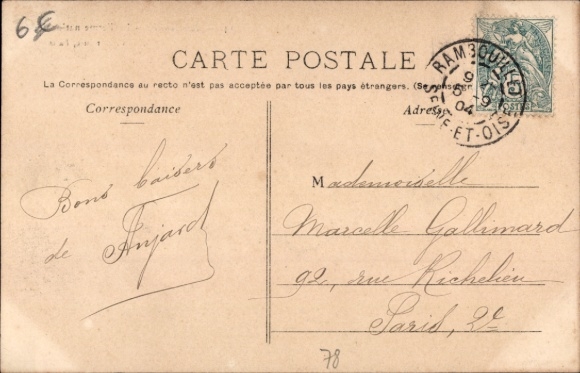 6€
CARTE POSTALE
La Correspondance au recto n'est pas acceptée par tous les pays étrangers. (Se renseigner
Correspondance
Adresse
RAMBOUILLET
9
5-9
04
SEINE-ET-OISE
Bons baisers
de Anjard
Mademoiselle
Marcelle Gallimard
92, rue Richelieu
Paris, 2e
78